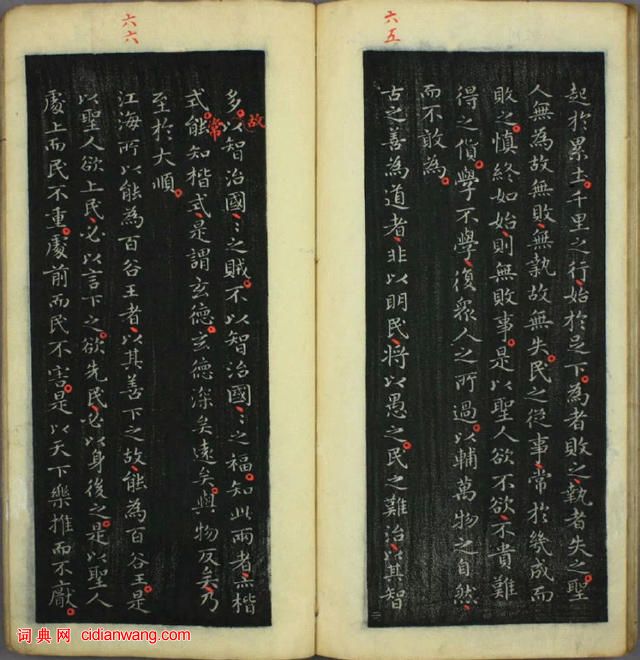 六五
起於累土千里之行始於足下為者敗之執者失之聖
人無為故無敗無執故無失民之從事常於幾成而
敗之慎終如始則無敗事是以聖人欲不欲不貴難
得之貨學不學復眾人之所過以輔萬物之自然
而不敢為
古之善為道者非以明民將以愚之民之難治以其智
六六
故
多以智治國〻之賊不以智治國〻之福知此兩者亦楷
常
式能知楷式是謂玄德玄德深矣遠矣與物反矣乃
至於大順
江海所以能為百谷王者以其善下之故能為百谷王是
以聖人欲上民必以言下之欲先民必以身後之是以聖人
處上而民不重處前而民不害是以天下樂推而不厭
词典网 cidianwang.com